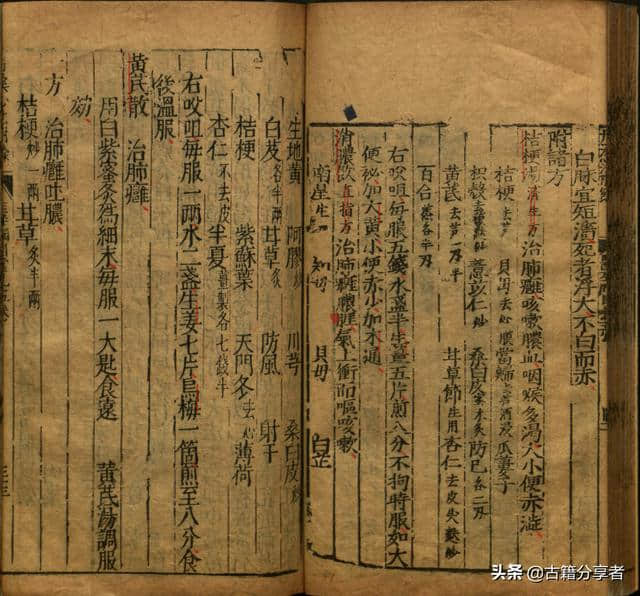 白脉宜短濇死者浮大不白而赤
附諸方
桔梗湯濟生方 治肺癰咳嗽膿血咽喉多渴大小便赤澁
桔梗去芦 貝母去心膜 當歸去芦酒浸 瓜蔞子
枳殼去穰麩炒 薏苡仁炒 桑白皮蜜水炙 防已各二刀
黃芪去芦一刀半 甘草節生用 杏仁去皮尖麩炒
百合蒸各半刀
右㕮咀每服五錢水盞半生薑五片煎八分不拘時服如大
便秘加大黃小便赤少加木通
消膿飲直指方 治肺癰膿腥氣上衝而嘔咳嗽
南星生 知母 貝母 白芷
生地黃 阿膠炒 川芎 桑白皮炒
白芨各半兩 甘草炙 防風 射干
桔梗 紫蘇葉 天門冬去心 薄荷
杏仁不去皮 半夏薑製各七錢半
右㕮咀每服一兩水二盞生姜七片烏梅一箇煎至八分食
後溫服
黄芪散 治肺癰
用白紫蜜炙爲細末每服一大匙食遠 黃芪湯調服
効
方 治肺癰吐膿
桔梗炒一兩 甘草炙半兩
头条 @古籍分享者